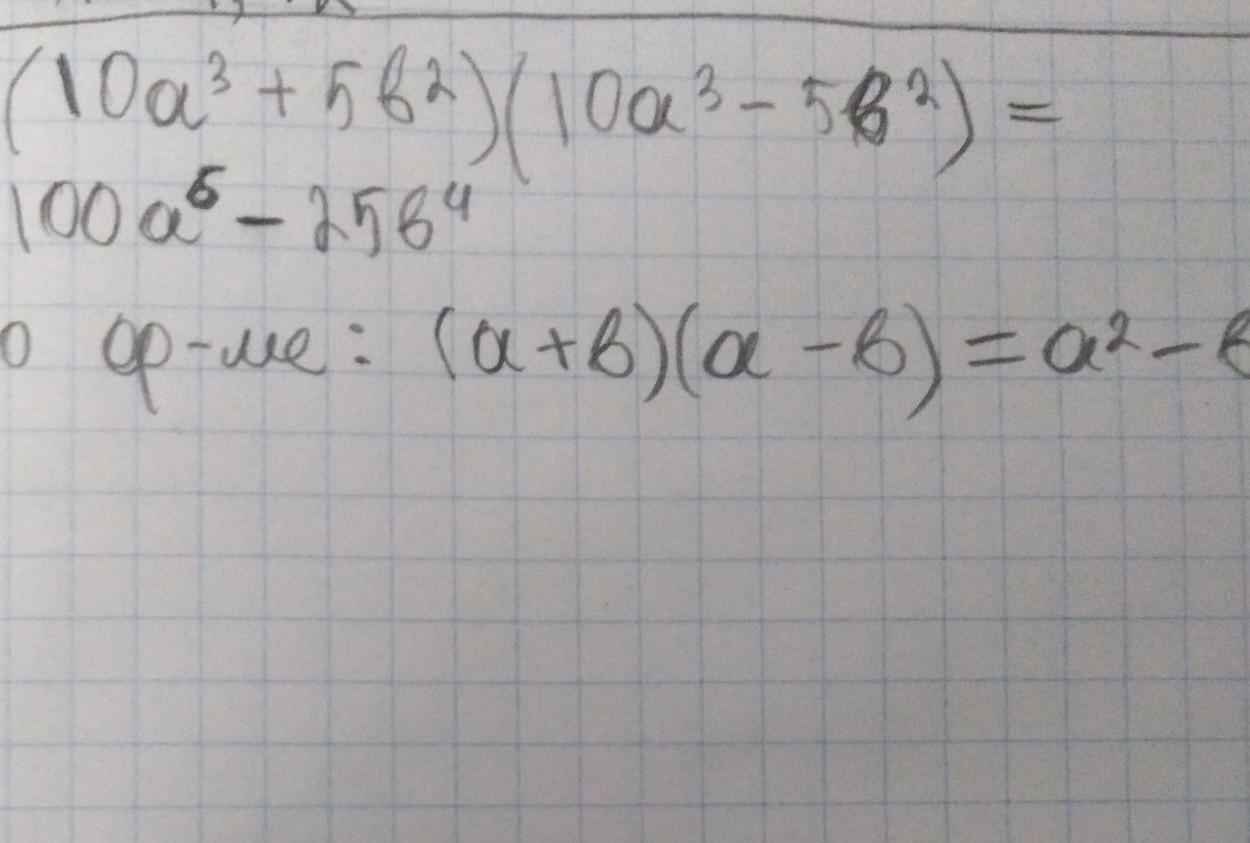 (10a³ + 5b²)(10a³ - 5b²) =
100a⁶ - 25b⁴
о ф-ле: (a + b)(a - b) = a² - b